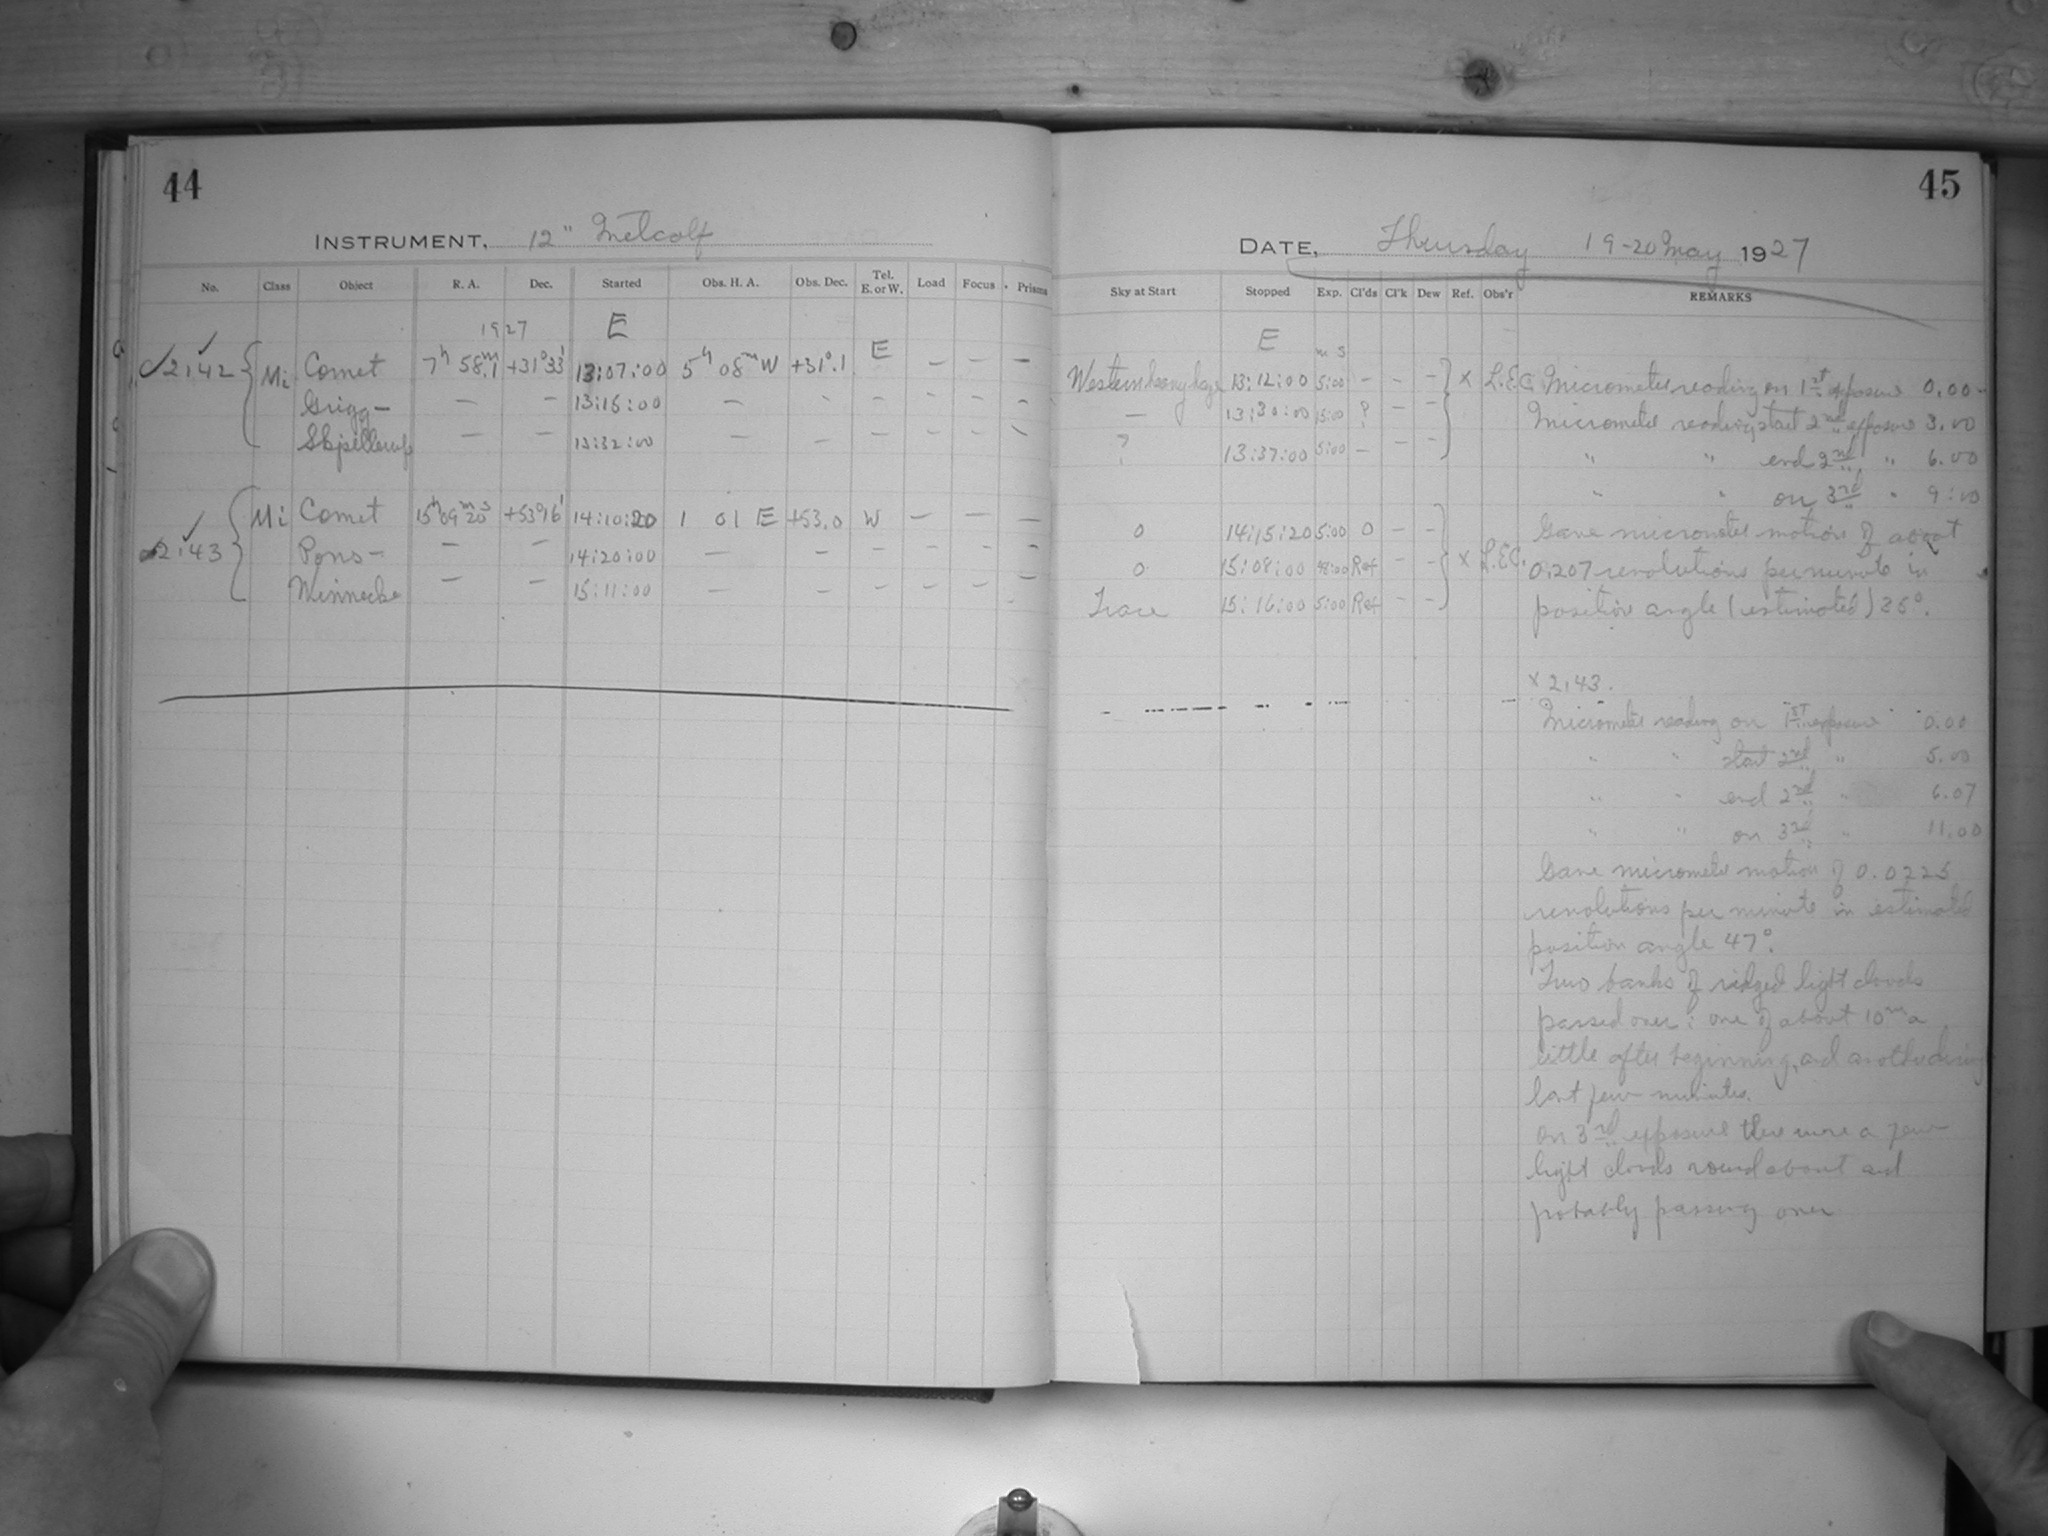 44
INSTRUMENT, 12" Metcalf
No. Class Object R. A. Dec. Started Obs. H. A. Obs. Dec. Tel. E. or W. Load Focus Prisms
1927 E
2142 Mi Comet 7h 58m.1 +31°33' 13:07:00 5h 08m W +31°.1 E — — —
Grigg- — — 13:15:00 — — — — — —
Skjellerup — — 13:32:00 — — — — — —
2143 Mi Comet 15h 09m 20s +53°16' 14:10:20 1 01 E +53.0 W — — —
Pons- — — 14:20:00 — — — — — —
Winnecke — — 15:11:00 — — — — — —
45
DATE, Thursday 19-20 May 1927
Sky at Start Stopped Exp. Cl'ds Cl'k Dew Ref. Obs'r REMARKS
E m s
Western heavy haze 13:12:00 5:00 — — — x L.E.C. Micrometer reading on 1st exposure 0.00
— 13:30:00 15:00 ? — — Micrometer reading start 2nd exposure 3.00
? 13:37:00 5:00 — — — " " end 2nd " 6.00
" " on 3rd " 9:00
0 14:15:20 5:00 0 — — Gave micrometer motion of about
0 15:08:00 48:00 Ref — — x L.E.C. 0.207 revolutions per minute in
Trace 15:16:00 5:00 Ref — — position angle (estimated) 35°.
x 2143.
Micrometer reading on 1st exposure 0.00
" " start 2nd " 5.00
" " end 2nd " 6.07
" " on 3rd " 11.00
Gave micrometer motion of 0.0225
revolutions per minute in estimated
position angle 47°.
Two banks of ridged light clouds
passed over: one of about 10m a
little after beginning, and another during
last few minutes.
On 3rd exposure there were a few
light clouds round about and
probably passing over